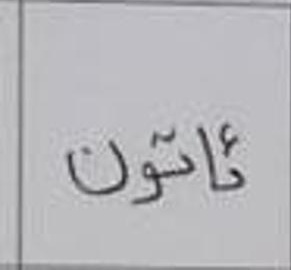 ئاتون